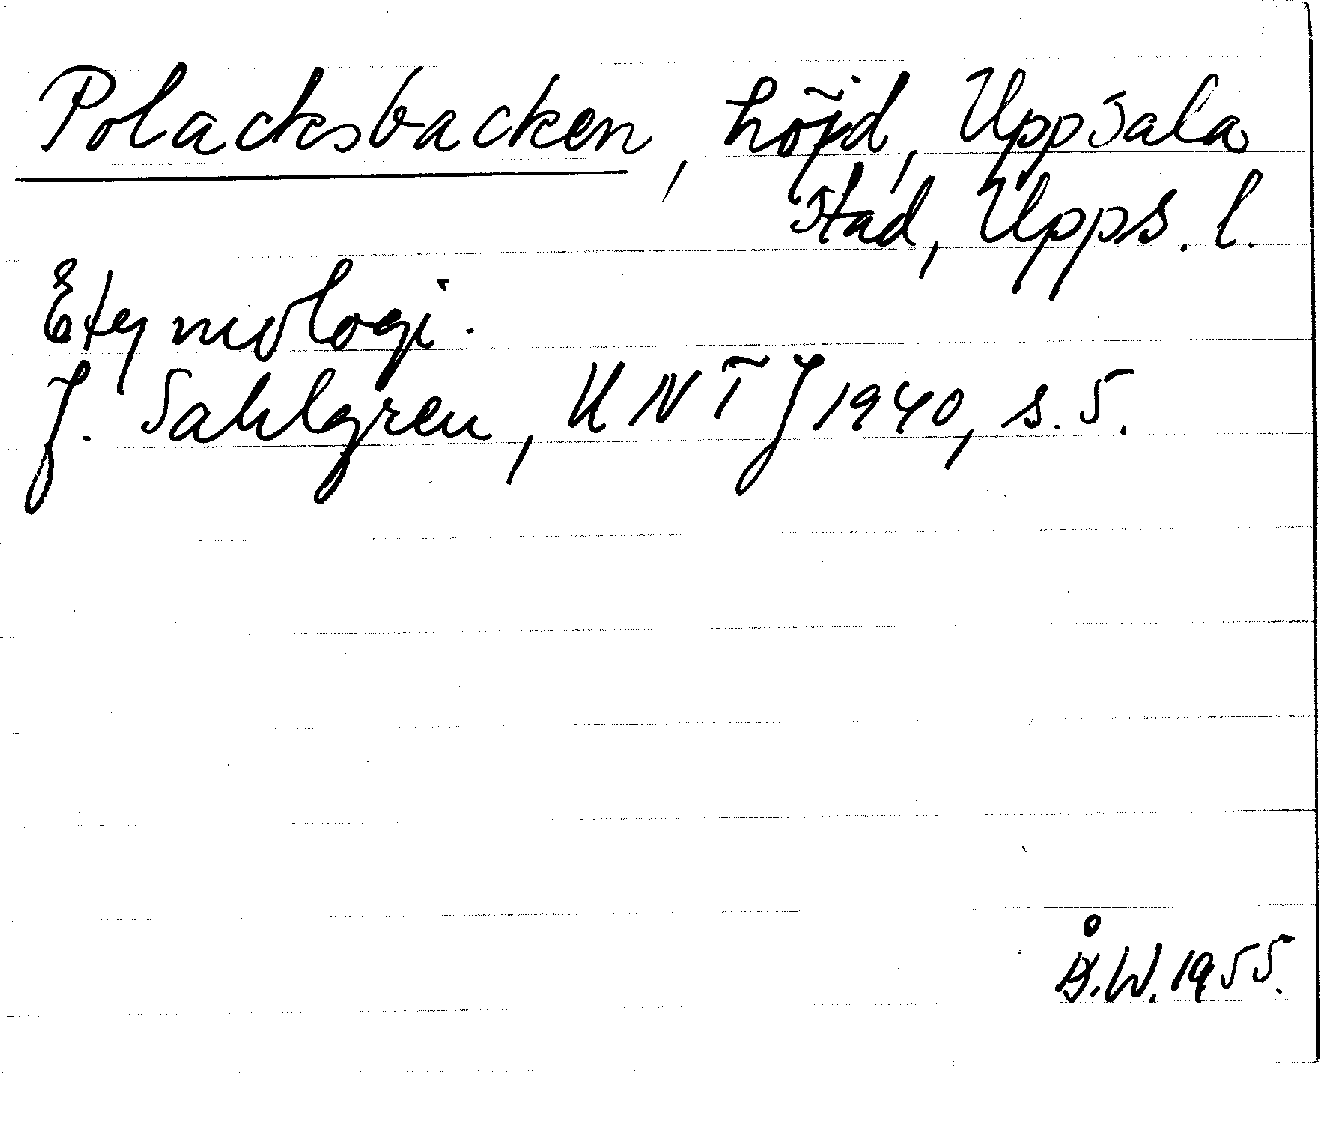 Polacksbacken, höjd, Uppsala
stad, Upps. l.
Etymologi.
J. Sahlgren, UNTJ 1940, s. 5.
Å.W. 1955.